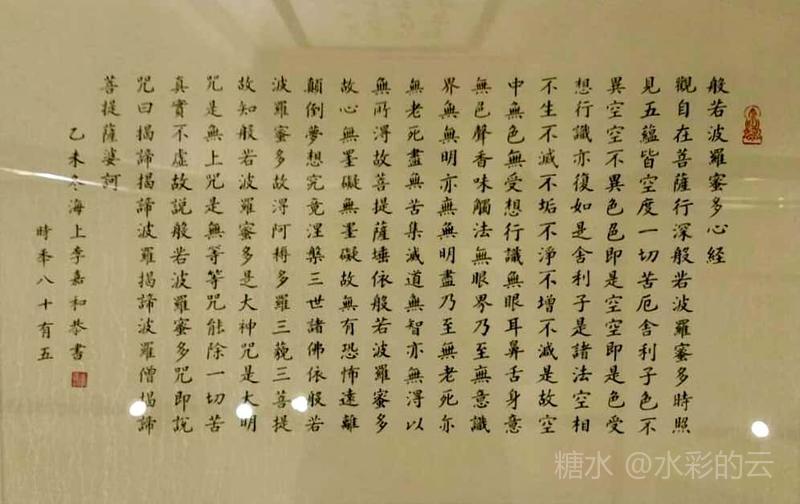 般若波羅蜜多心經
觀自在菩薩行深般若波羅蜜多時照
見五蘊皆空度一切苦厄舍利子色不
異空空不異色色即是空空即是色受
想行識亦復如是舍利子是諸法空相
不生不滅不垢不淨不增不減是故空
中無色無受想行識無眼耳鼻舌身意
無色聲香味觸法無眼界乃至無意識
界無無明亦無無明盡乃至無老死亦
無老死盡無苦集滅道無智亦無得以
無所得故菩提薩埵依般若波羅蜜多
故心無罣礙無罣礙故無有恐怖遠離
顛倒夢想究竟涅槃三世諸佛依般若
波羅蜜多故得阿耨多羅三藐三菩提
故知般若波羅蜜多是大神咒是大明
咒是無上咒是無等等咒能除一切苦
真實不虛故說般若波羅蜜多咒即說
咒曰揭諦揭諦波羅揭諦波羅僧揭諦
菩提薩婆訶
乙未冬海上李嘉和恭書
時年八十有五
糖水 @水彩的云